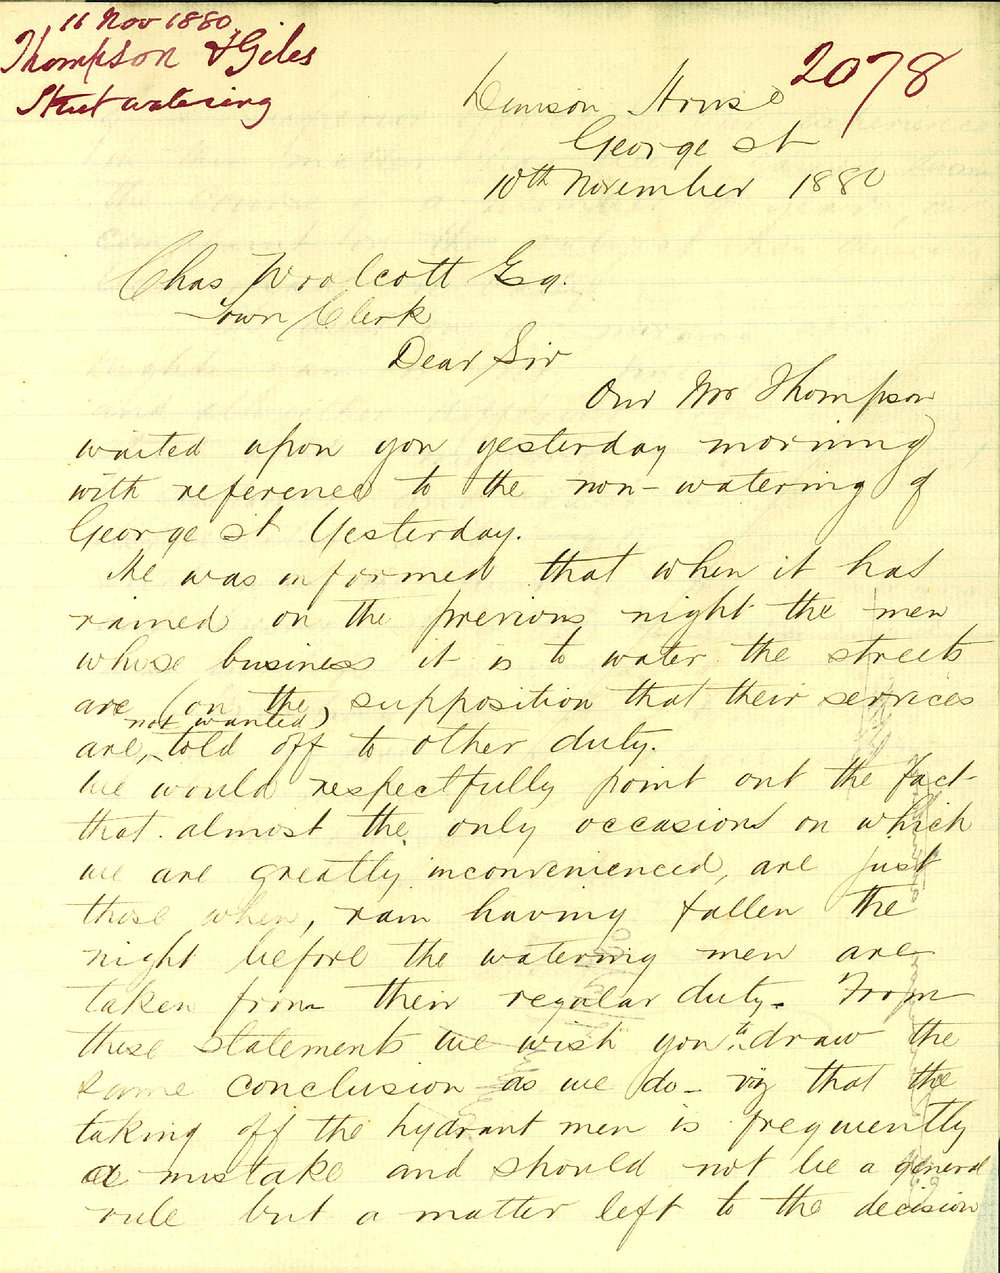 11 Nov 1880
Thompson & Giles
Street watering
2078
Denison House
George St
10th November 1880
Chas Woolcott Esq.
Town Clerk
Dear Sir
Our Mr Thompson
waited upon you yesterday morning
with reference to the non-watering of
George St Yesterday.
He was informed that when it has
rained on the previous night the men
whose business it is to water the streets
are (on the supposition that their services
are not wanted) told off to other duty.
We would respectfully point out the fact
that almost the only occasions on which
we are greatly inconvenienced, are just
those when, rain having fallen the
night before the watering men are
taken from their regular duty. From
these statements we wish you to draw the
same conclusion as we do - viz that the
taking off the hydrant men is frequently
a mistake and should not be a general
rule but a matter left to the decision